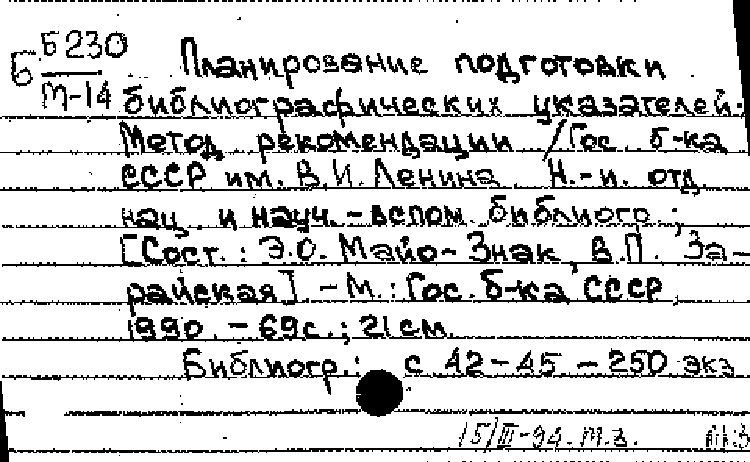 Б Б230
М-14
Планирование подготовки
библиографических указателей.
Метод. рекомендации / Гос. б-ка
СССР им. В.И. Ленина. Н.-и. отд.
нац. и науч.-вспом. библиогр.;
[Сост.: Э.О. Майо-Знак, В.П. За-
райская]. - М.: Гос. б-ка СССР,
1990. - 69с.; 21см.
Библиогр.: с 42-45 - 250 экз
15/III-94. М.З.